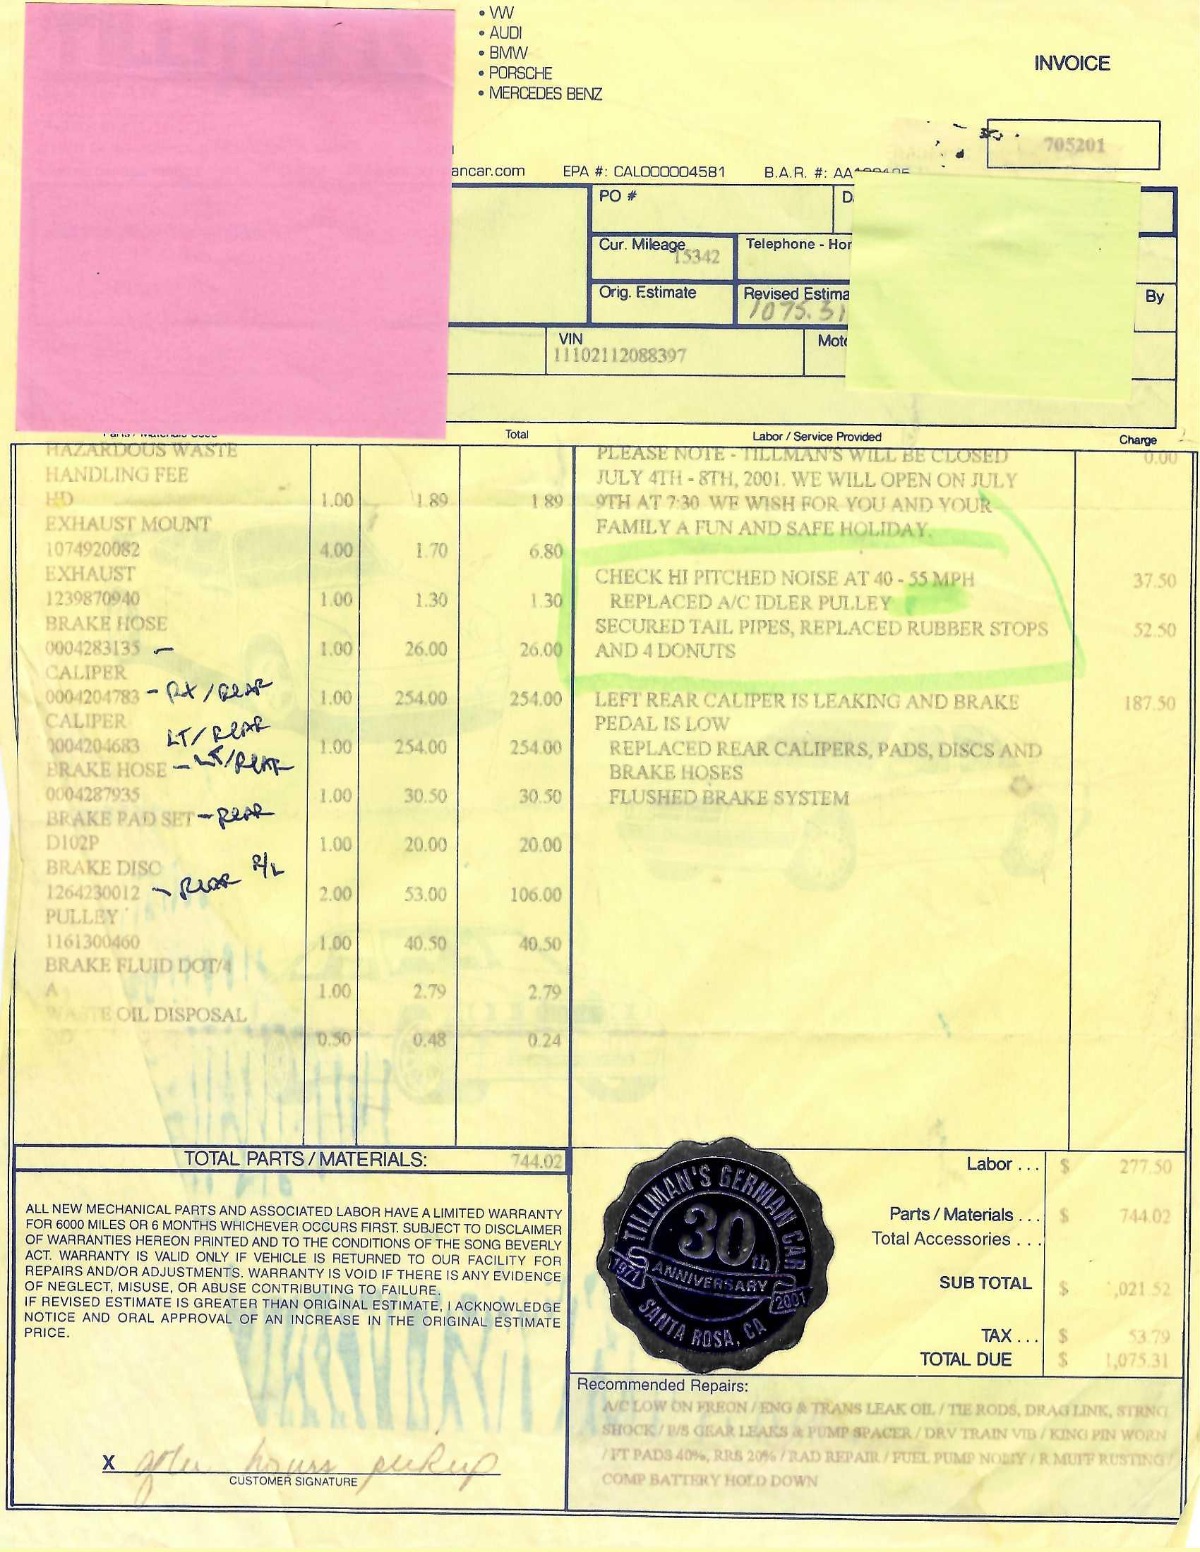 • VW
• AUDI
• BMW
• PORSCHE
• MERCEDES BENZ
INVOICE
705201
ancar.com EPA #: CAL000004581 B.A.R. #:
PO #
Cur. Mileage 15342 Telephone - Hor
Orig. Estimate Revised Estima By
1075.31
VIN
11102112088397
Total Labor / Service Provided Charge
HAZARDOUS WASTE
HANDLING FEE
HD 1.00 1.89 1.89
EXHAUST MOUNT
1074920082 4.00 1.70 6.80
EXHAUST
1239870940 1.00 1.30 1.30
BRAKE HOSE
0004283135 – 1.00 26.00 26.00
CALIPER
0004204783 – RX / REAR 1.00 254.00 254.00
CALIPER LT/REAR
0004204683 1.00 254.00 254.00
BRAKE HOSE – LT/REAR
0004287935 1.00 30.50 30.50
BRAKE PAD SET – REAR
D102P 1.00 20.00 20.00
BRAKE DISC
1264230012 – REAR R/L 2.00 53.00 106.00
PULLEY
1161300460 1.00 40.50 40.50
BRAKE FLUID DOT/4
A 1.00 2.79 2.79
WASTE OIL DISPOSAL
0.50 0.48 0.24
PLEASE NOTE - TILLMAN'S WILL BE CLOSED 0.00
JULY 4TH - 8TH, 2001. WE WILL OPEN ON JULY
9TH AT 7:30 WE WISH FOR YOU AND YOUR
FAMILY A FUN AND SAFE HOLIDAY.
CHECK HI PITCHED NOISE AT 40 - 55 MPH 37.50
REPLACED A/C IDLER PULLEY
SECURED TAIL PIPES, REPLACED RUBBER STOPS 52.50
AND 4 DONUTS
LEFT REAR CALIPER IS LEAKING AND BRAKE 187.50
PEDAL IS LOW
REPLACED REAR CALIPERS, PADS, DISCS AND
BRAKE HOSES
FLUSHED BRAKE SYSTEM
TOTAL PARTS / MATERIALS: 744.02
ALL NEW MECHANICAL PARTS AND ASSOCIATED LABOR HAVE A LIMITED WARRANTY
FOR 6000 MILES OR 6 MONTHS WHICHEVER OCCURS FIRST. SUBJECT TO DISCLAIMER
OF WARRANTIES HEREON PRINTED AND TO THE CONDITIONS OF THE SONG BEVERLY
ACT. WARRANTY IS VALID ONLY IF VEHICLE IS RETURNED TO OUR FACILITY FOR
REPAIRS AND/OR ADJUSTMENTS. WARRANTY IS VOID IF THERE IS ANY EVIDENCE
OF NEGLECT, MISUSE, OR ABUSE CONTRIBUTING TO FAILURE.
IF REVISED ESTIMATE IS GREATER THAN ORIGINAL ESTIMATE, I ACKNOWLEDGE
NOTICE AND ORAL APPROVAL OF AN INCREASE IN THE ORIGINAL ESTIMATE
PRICE.
X after hours pickup
CUSTOMER SIGNATURE
TILLMAN'S GERMAN CAR
30th
ANNIVERSARY
1971 2001
SANTA ROSA, CA
Labor . . . $ 277.50
Parts / Materials . . . $ 744.02
Total Accessories . . .
SUB TOTAL $ 1,021.52
TAX . . . $ 53.79
TOTAL DUE $ 1,075.31
Recommended Repairs:
A/C LOW ON FREON / ENG & TRANS LEAK OIL / TIE RODS, DRAG LINK, STRNG
SHOCK / P/S GEAR LEAKS & PUMP SPACER / DRV TRAIN VIB / KING PIN WORN
/ FT PADS 40%, RRS 20% / RAD REPAIR / FUEL PUMP NOISY / R MUFF RUSTING /
COMP BATTERY HOLD DOWN